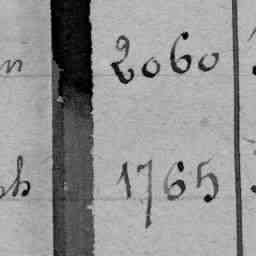 2060
1765